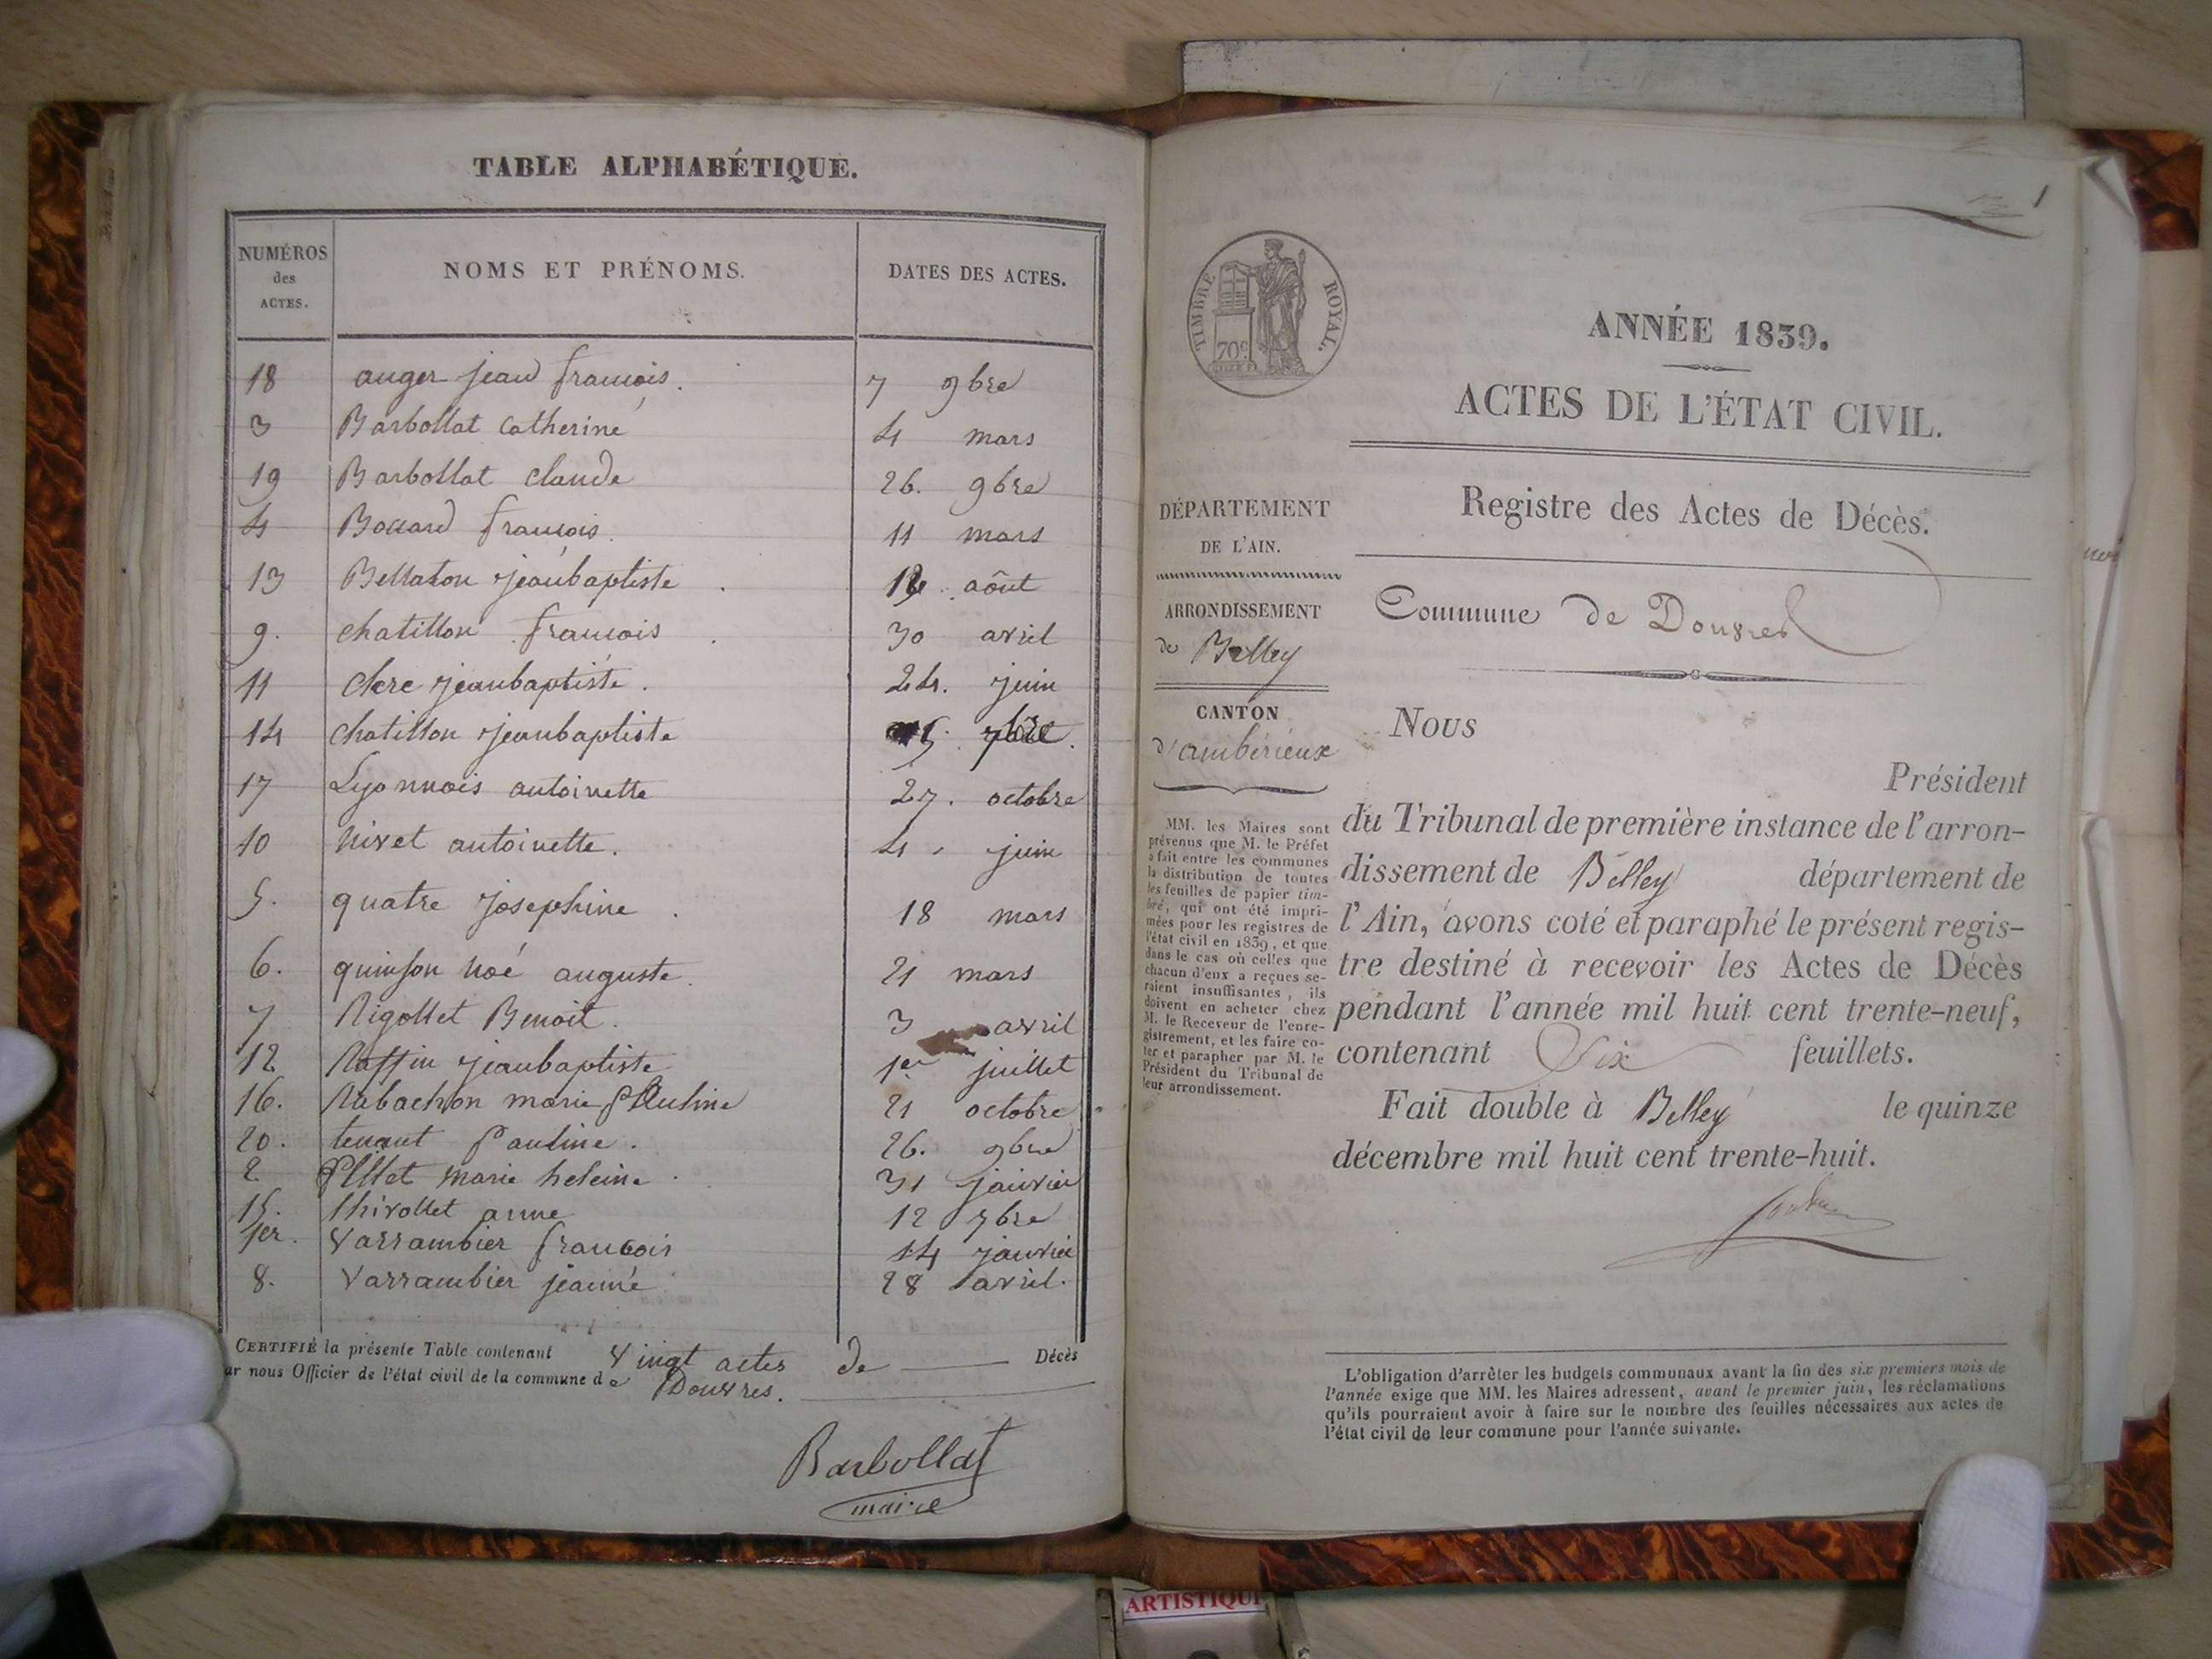 TABLE ALPHABÉTIQUE.
NUMÉROS des ACTES. NOMS ET PRÉNOMS. DATES DES ACTES.
18 auger jean francois. 7 9bre
3 Barbollat Catherine 4 mars
19 Barbollat claude 26. 9bre
4 Boccard francois. 11 mars
13 Bellaton jeanbaptiste. août
9. chatillon francois. 30 avril
11 clere jeanbaptiste. 24. juin
14 chatillon jeanbaptiste 5. 7bre.
17 Lyonnois antoinette 27. octobre
10 Nivet antoinette. 4. juin
5. quatre josephine. 18 mars
6. quinson Noé auguste. 21 mars
7 Rigollet Benoit. 3 avril
12 Raffin jeanbaptiste 1er juillet
16. Rabachon marie Pauline 21 octobre
20. tenant Pauline. 26. 9bre
2 Pillet marie heleine. 31 janvier
15. thivollet anne 12 7bre
1er. Varrambier francois 14 janvier
8. Varrambier jeanne 28 avril.
CERTIFIÉ la présente Table contenant Vingt actes de Décès
ar nous Officier de l'état civil de la commune de Douvres.
Barbollat
maire
1
TIMBRE ROYAL.
70c
ANNÉE 1839.
ACTES DE L'ÉTAT CIVIL.
Registre des Actes de Décès.
DÉPARTEMENT
DE L'AIN.
ARRONDISSEMENT
de Belley
CANTON
d'ambérieux
MM. les Maires sont
prévenus que M. le Préfet
a fait entre les communes
la distribution de toutes
les feuilles de papier tim-
bré, qui ont été impri-
mées pour les registres de
l'état civil en 1839, et que
dans le cas où celles que
chacun d'eux a reçues se-
raient insuffisantes, ils
doivent en acheter chez
M. le Receveur de l'enre-
gistrement, et les faire co-
ter et parapher par M. le
Président du Tribunal de
leur arrondissement.
Commune de Douvres
Nous
Président
du Tribunal de première instance de l'arron-
dissement de Belley département de
l'Ain, avons coté et paraphé le présent regis-
tre destiné à recevoir les Actes de Décès
pendant l'année mil huit cent trente-neuf,
contenant Six feuillets.
Fait double à Belley le quinze
décembre mil huit cent trente-huit.
L'obligation d'arrêter les budgets communaux avant la fin des six premiers mois de
l'année exige que MM. les Maires adressent, avant le premier juin, les réclamations
qu'ils pourraient avoir à faire sur le nombre des feuilles nécessaires aux actes de
l'état civil de leur commune pour l'année suivante.
ARTISTIQUE